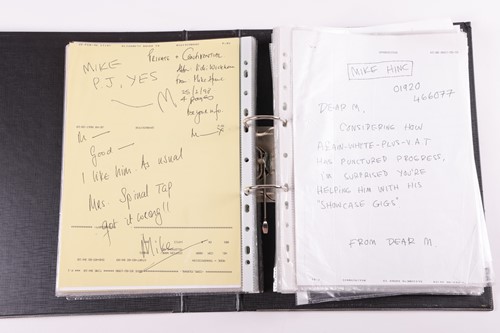 MIKE
P.J. YES
M
PRIVATE + CONFIDENTIAL
From Mike
25/2/98
4 pages
For your info.
M
M
Good
I like him. As usual
Mrs. Spinal Tap
got it wrong!!
Mike
MIKE HINC
01920
466077
DEAR M,
CONSIDERING HOW
PLUS-V.A.T
HAS PUNCTURED PROGRESS,
I'M SURPRISED YOU'RE
HELPING HIM WITH HIS
"SHOWCASE GIGS"
FROM DEAR M